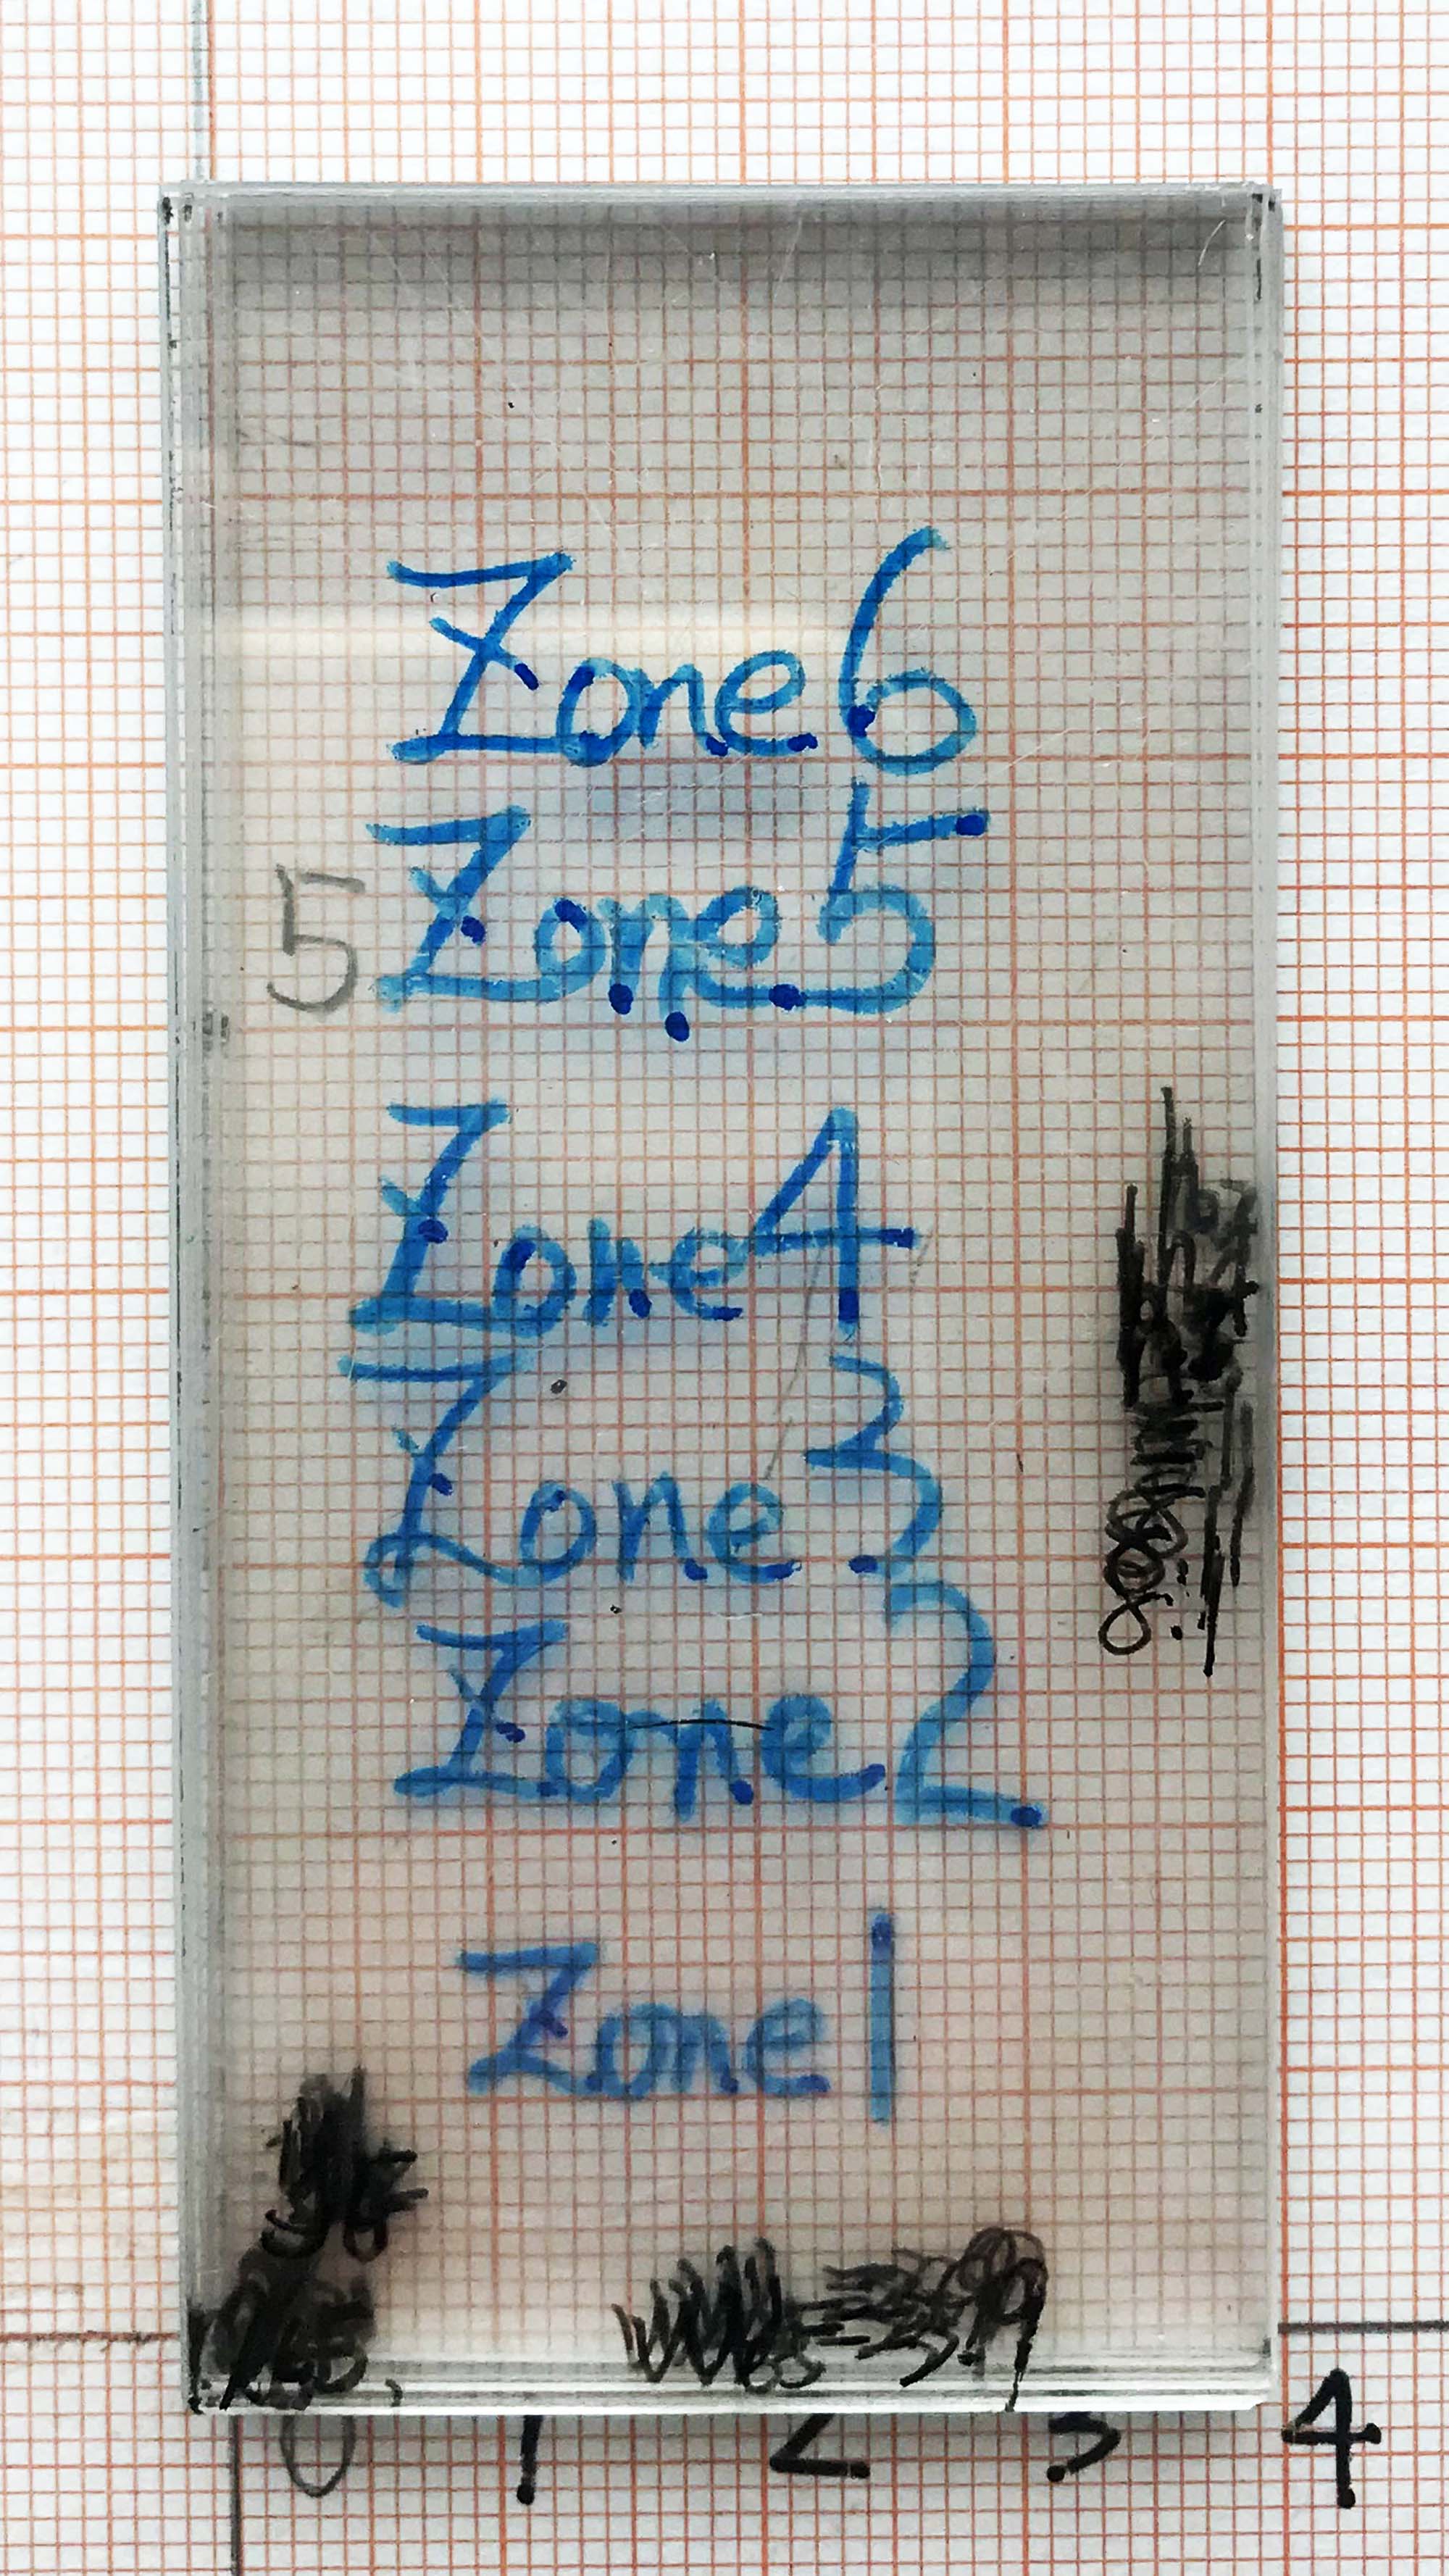 Zone 6
Zone 5
5
Zone 4
Zone 3
Zone 2
Zone 1
0 1 2 3 4